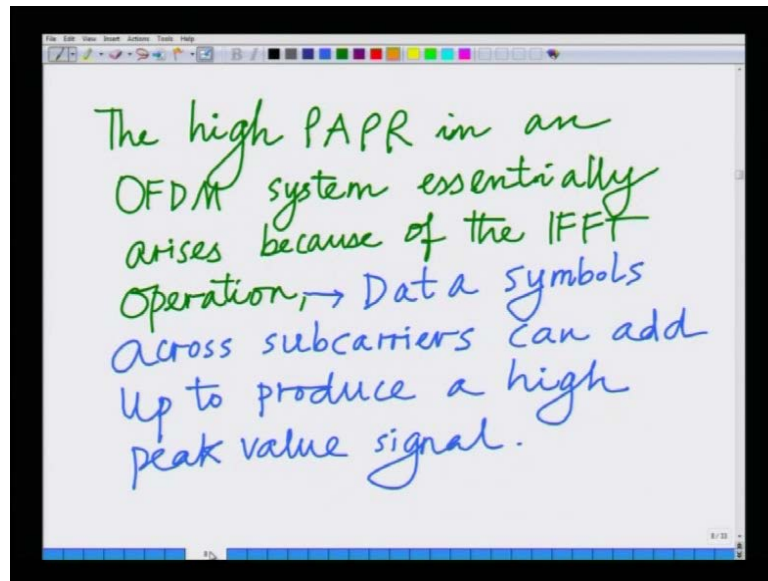 File Edit View Insert Actions Tools Help
B I
The high PAPR in an
OFDM system essentially
arises because of the IFFT
operation, → Data symbols
across subcarriers can add
up to produce a high
peak value signal.
8/33